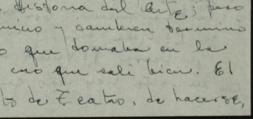 historia del arte, pero
y tambien termino
que tomaba en la
que sali bien. El
de Teatro, de hacerse,